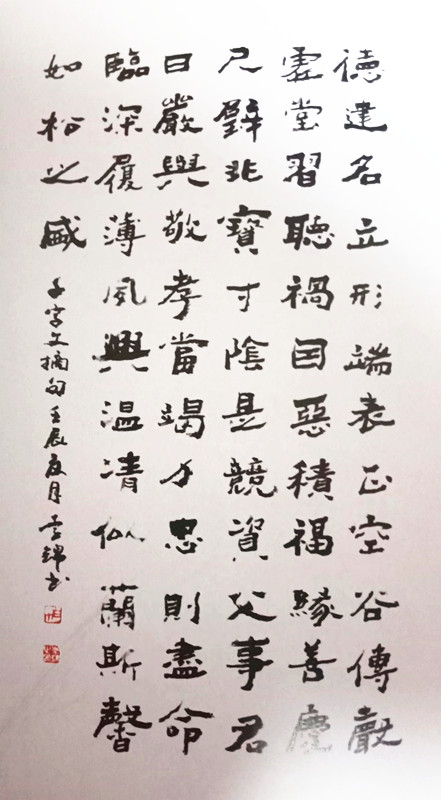 德建名立形端表正空谷傳聲
虛堂習聽禍因惡積福緣善慶
尺璧非寶寸陰是競資父事君
曰嚴與敬孝當竭力忠則盡命
臨深履薄夙興温清似蘭斯馨
如松之盛
千字文摘句壬辰夏月书